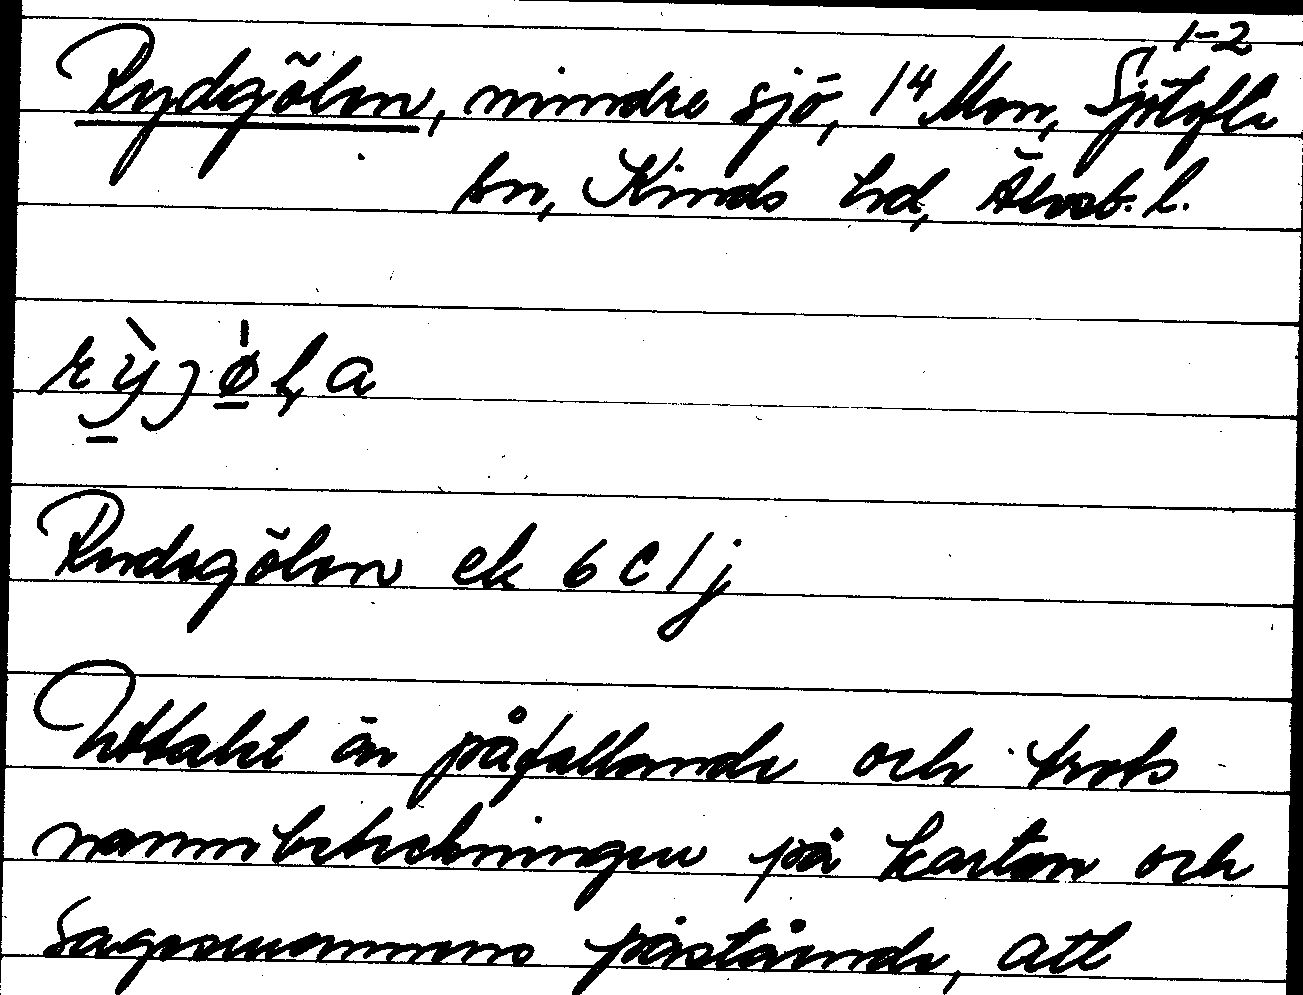 1-2
Rydgölen, mindre sjö, 14 Mon, Sjötofta
sn, Kinds hd, Älvsb. l.
rỳjø̀l,a
Rudegölen ek 6 C 1 j
Uttalet är påfallande och trots
namnbeteckningen på kartan och
sagesmannens påstående, att